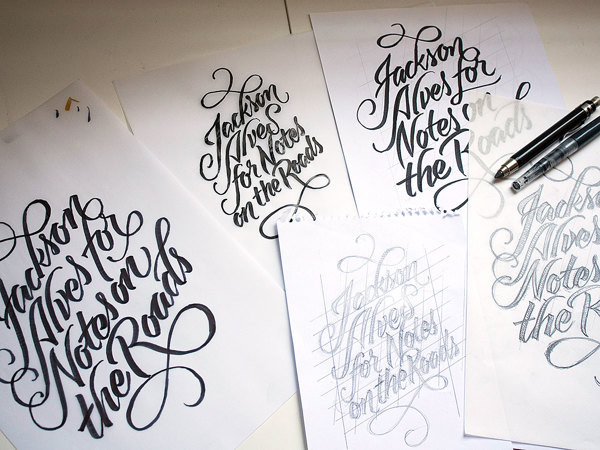 Jackson
Alves for
Notes on
the Roads
Jackson
Alves
for Notes
on the Roads
Jackson
Alves for
Notes on
the Roads
Jackson
Alves
for Notes
on the Roads
Jackson
Alves
Notes
the Ro